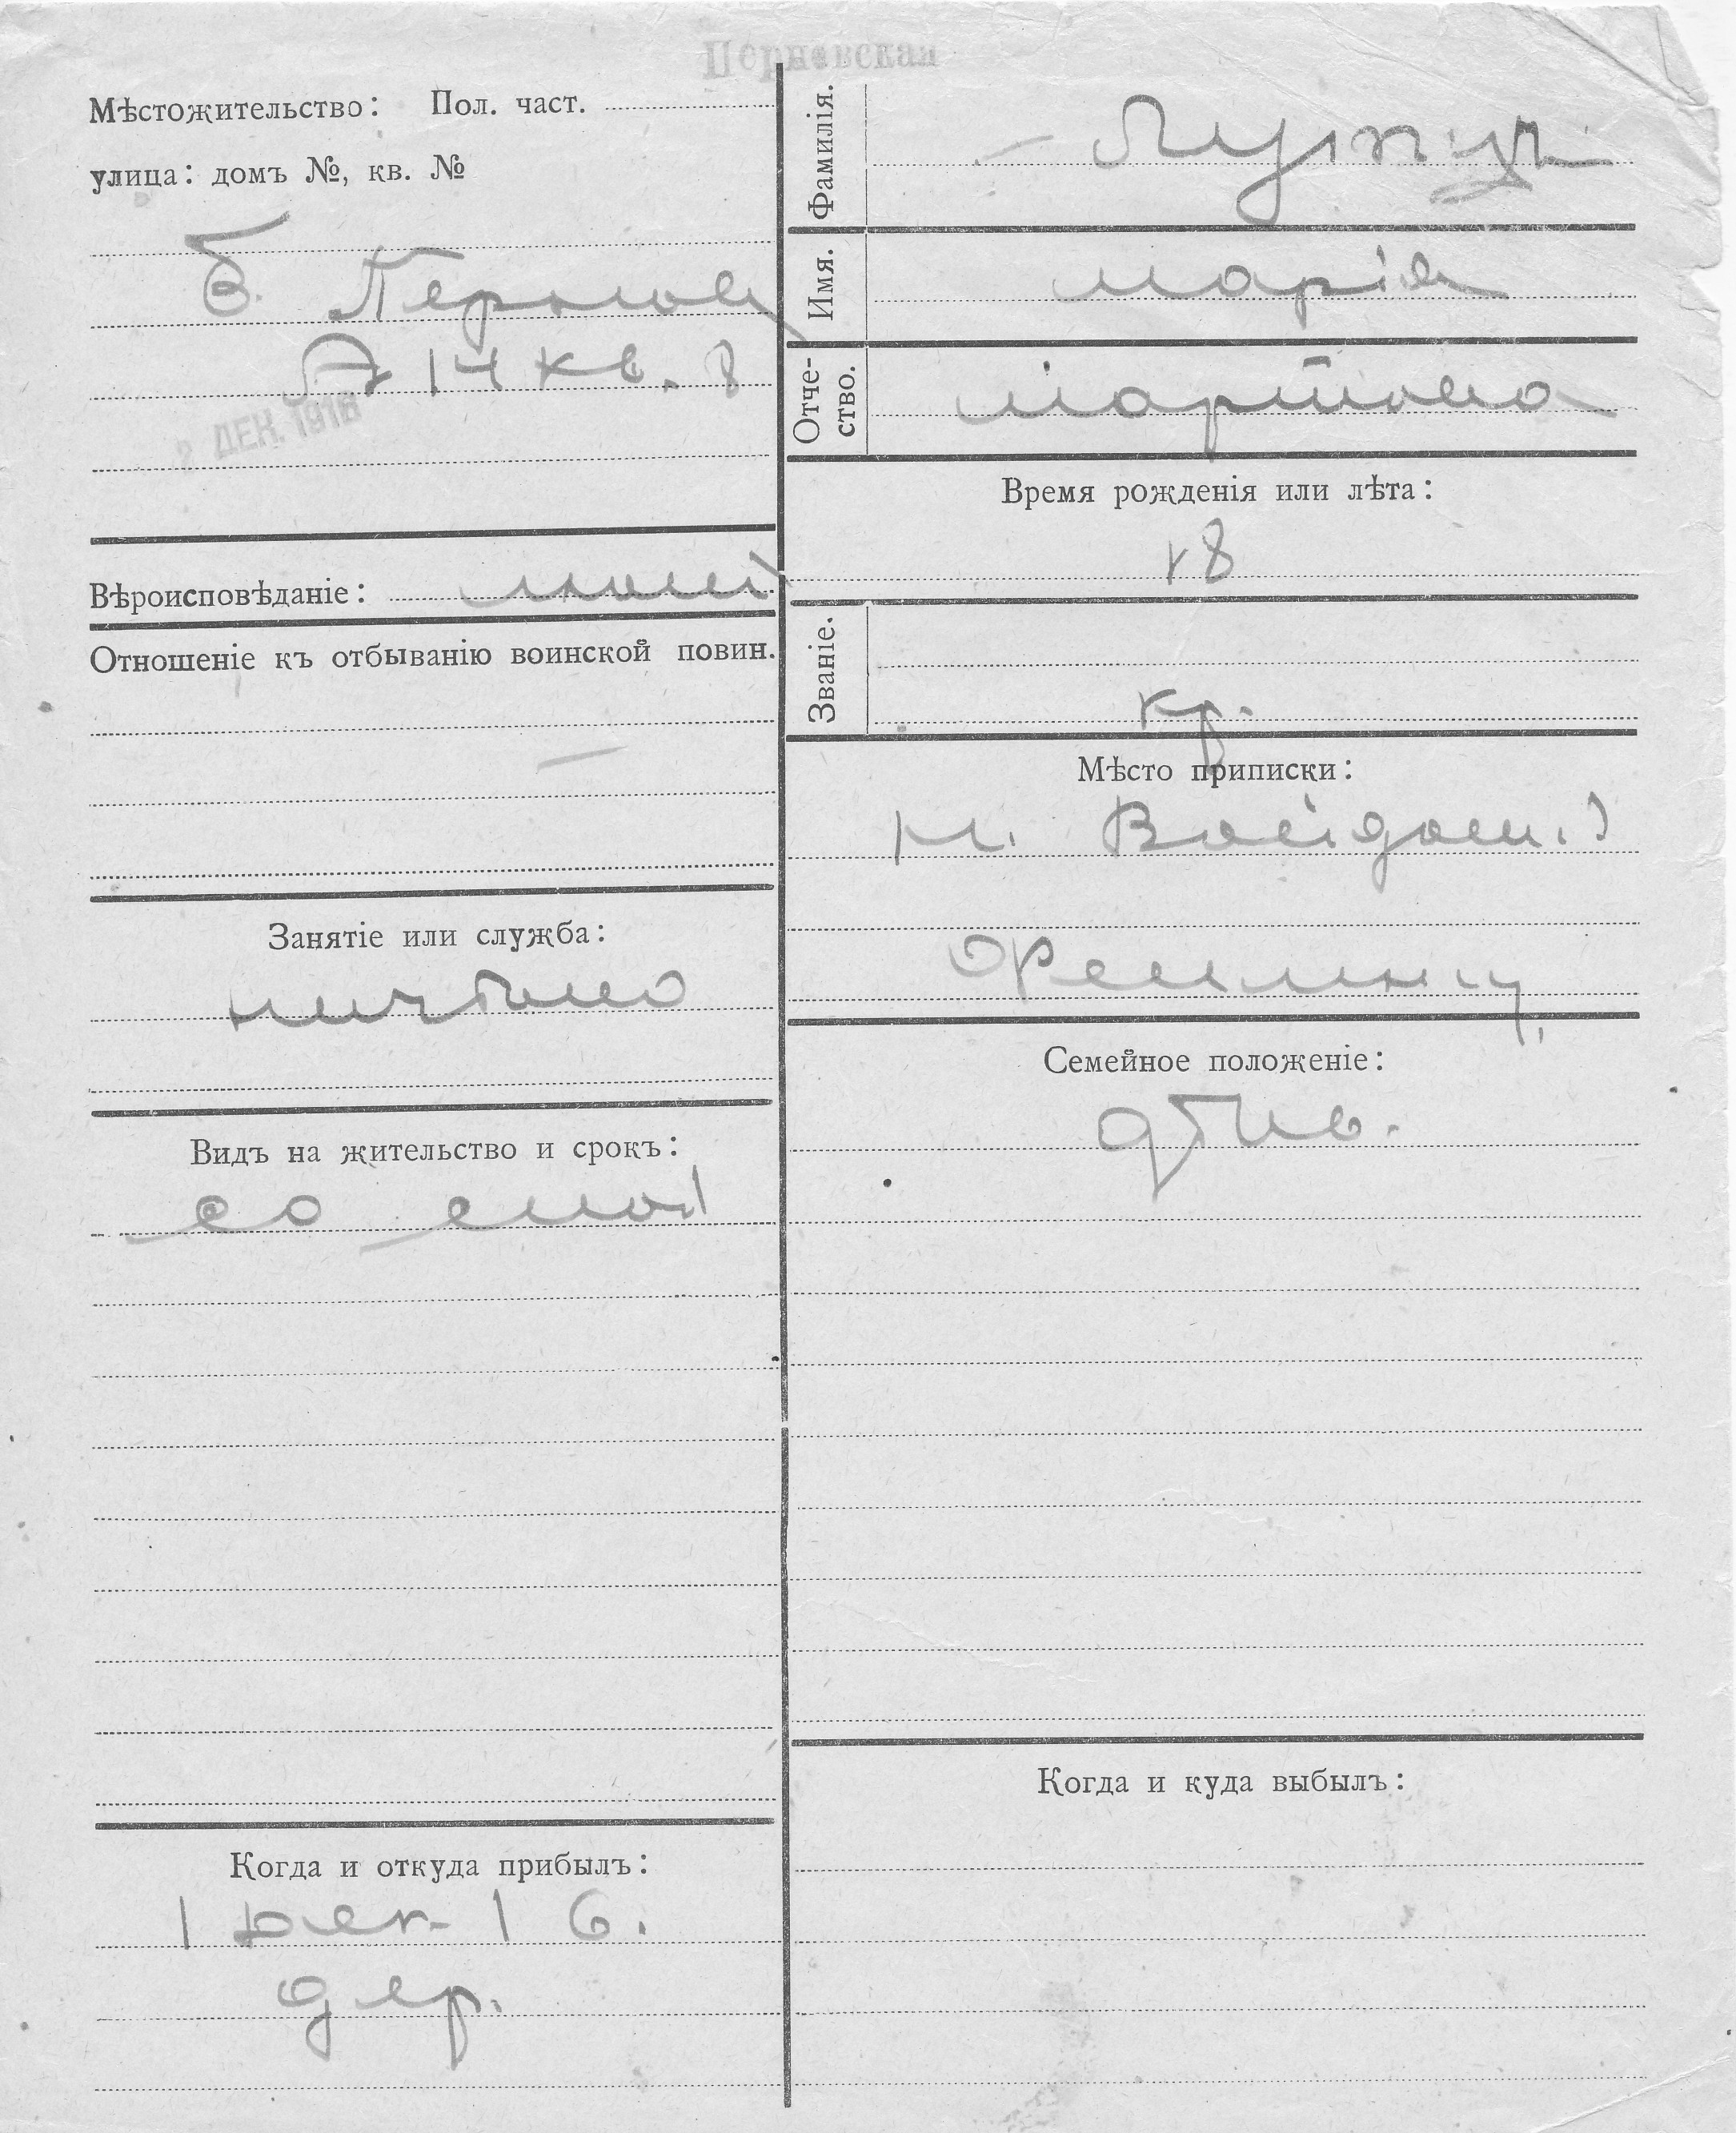 Перновская
Мѣстожительство: Пол. част.
улица: домъ №, кв. №
Б. Пернов
Д 14 кв. 8
2 ДЕК. 1916
Вѣроисповѣданіе:
Отношеніе къ отбыванію воинской повин.
—
Занятіе или служба:
Видъ на жительство и срокъ:
Когда и откуда прибылъ:
1 Дек 16.
дер.
Фамилія.
Имя. Марія
Отче-
ство. Мартова
Время рожденія или лѣта:
18
Званіе.
кр.
Мѣсто приписки:
Семейное положеніе:
дѣв.
Когда и куда выбылъ: